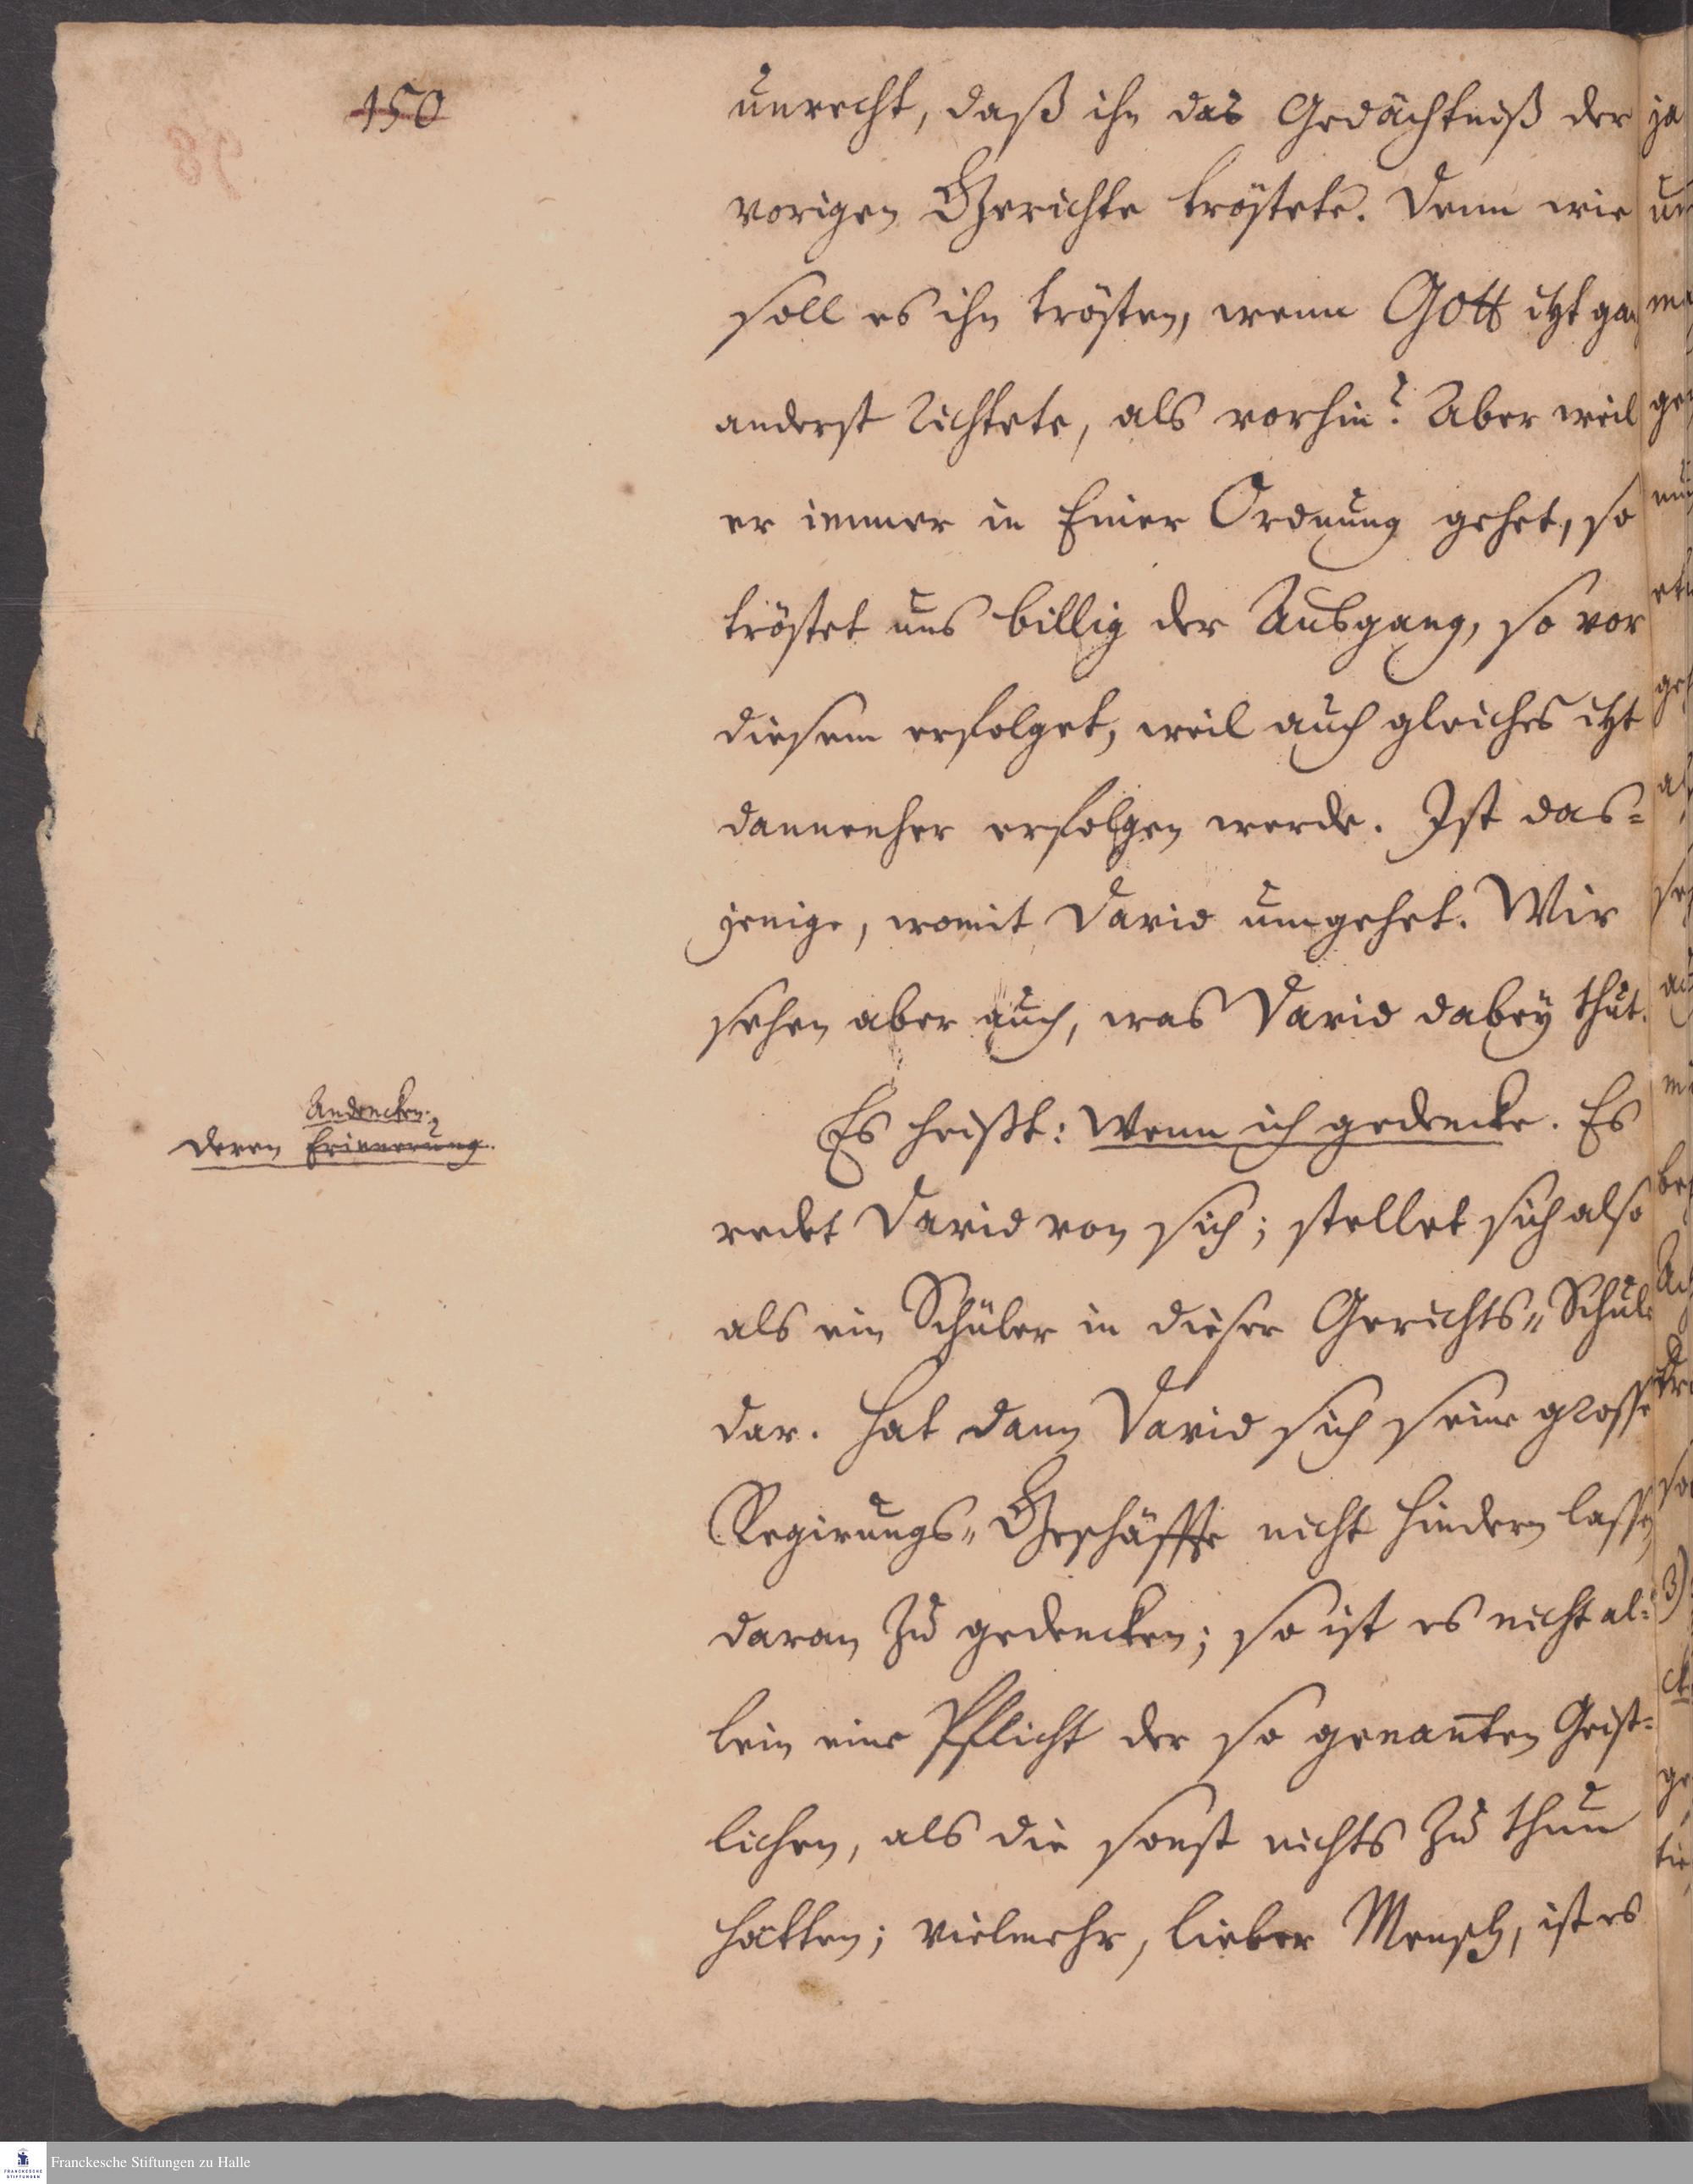 150
unrecht, daß ihn das Gedächtniß der
vorigen Gerichte tröstete. Denn wie
soll es ihn trösten, wenn Gott itzt gar
anderst Richtete, als vorhin? Aber weil
er immer in Einer Ordnung gehet, so
tröstet uns billig der Ausgang, so vor
diesem erfolget, weil auch gleiches itzt
dannenher erfolgen werde. Ist das=
jenige, womit David umgehet. Wir
sehen aber auch, was David dabey thut.
Andencken.
deren Erinnerung.
Es heisst: Wenn ich gedencke. Es
redet David von sich; stellet sich also
als ein Schüler in dieser Gerichts=Schule
dar. Hat dann David sich seine grosse
Regirungs=Geschäffte nicht hindern lassen,
daran zu gedencken; so ist es nicht al=
lein eine Pflicht der so genan̄ten Geist=
lichen, als die sonst nichts zu thun
hätten; vielmehr, lieber Mensch, ist es
Franckesche Stiftungen zu Halle